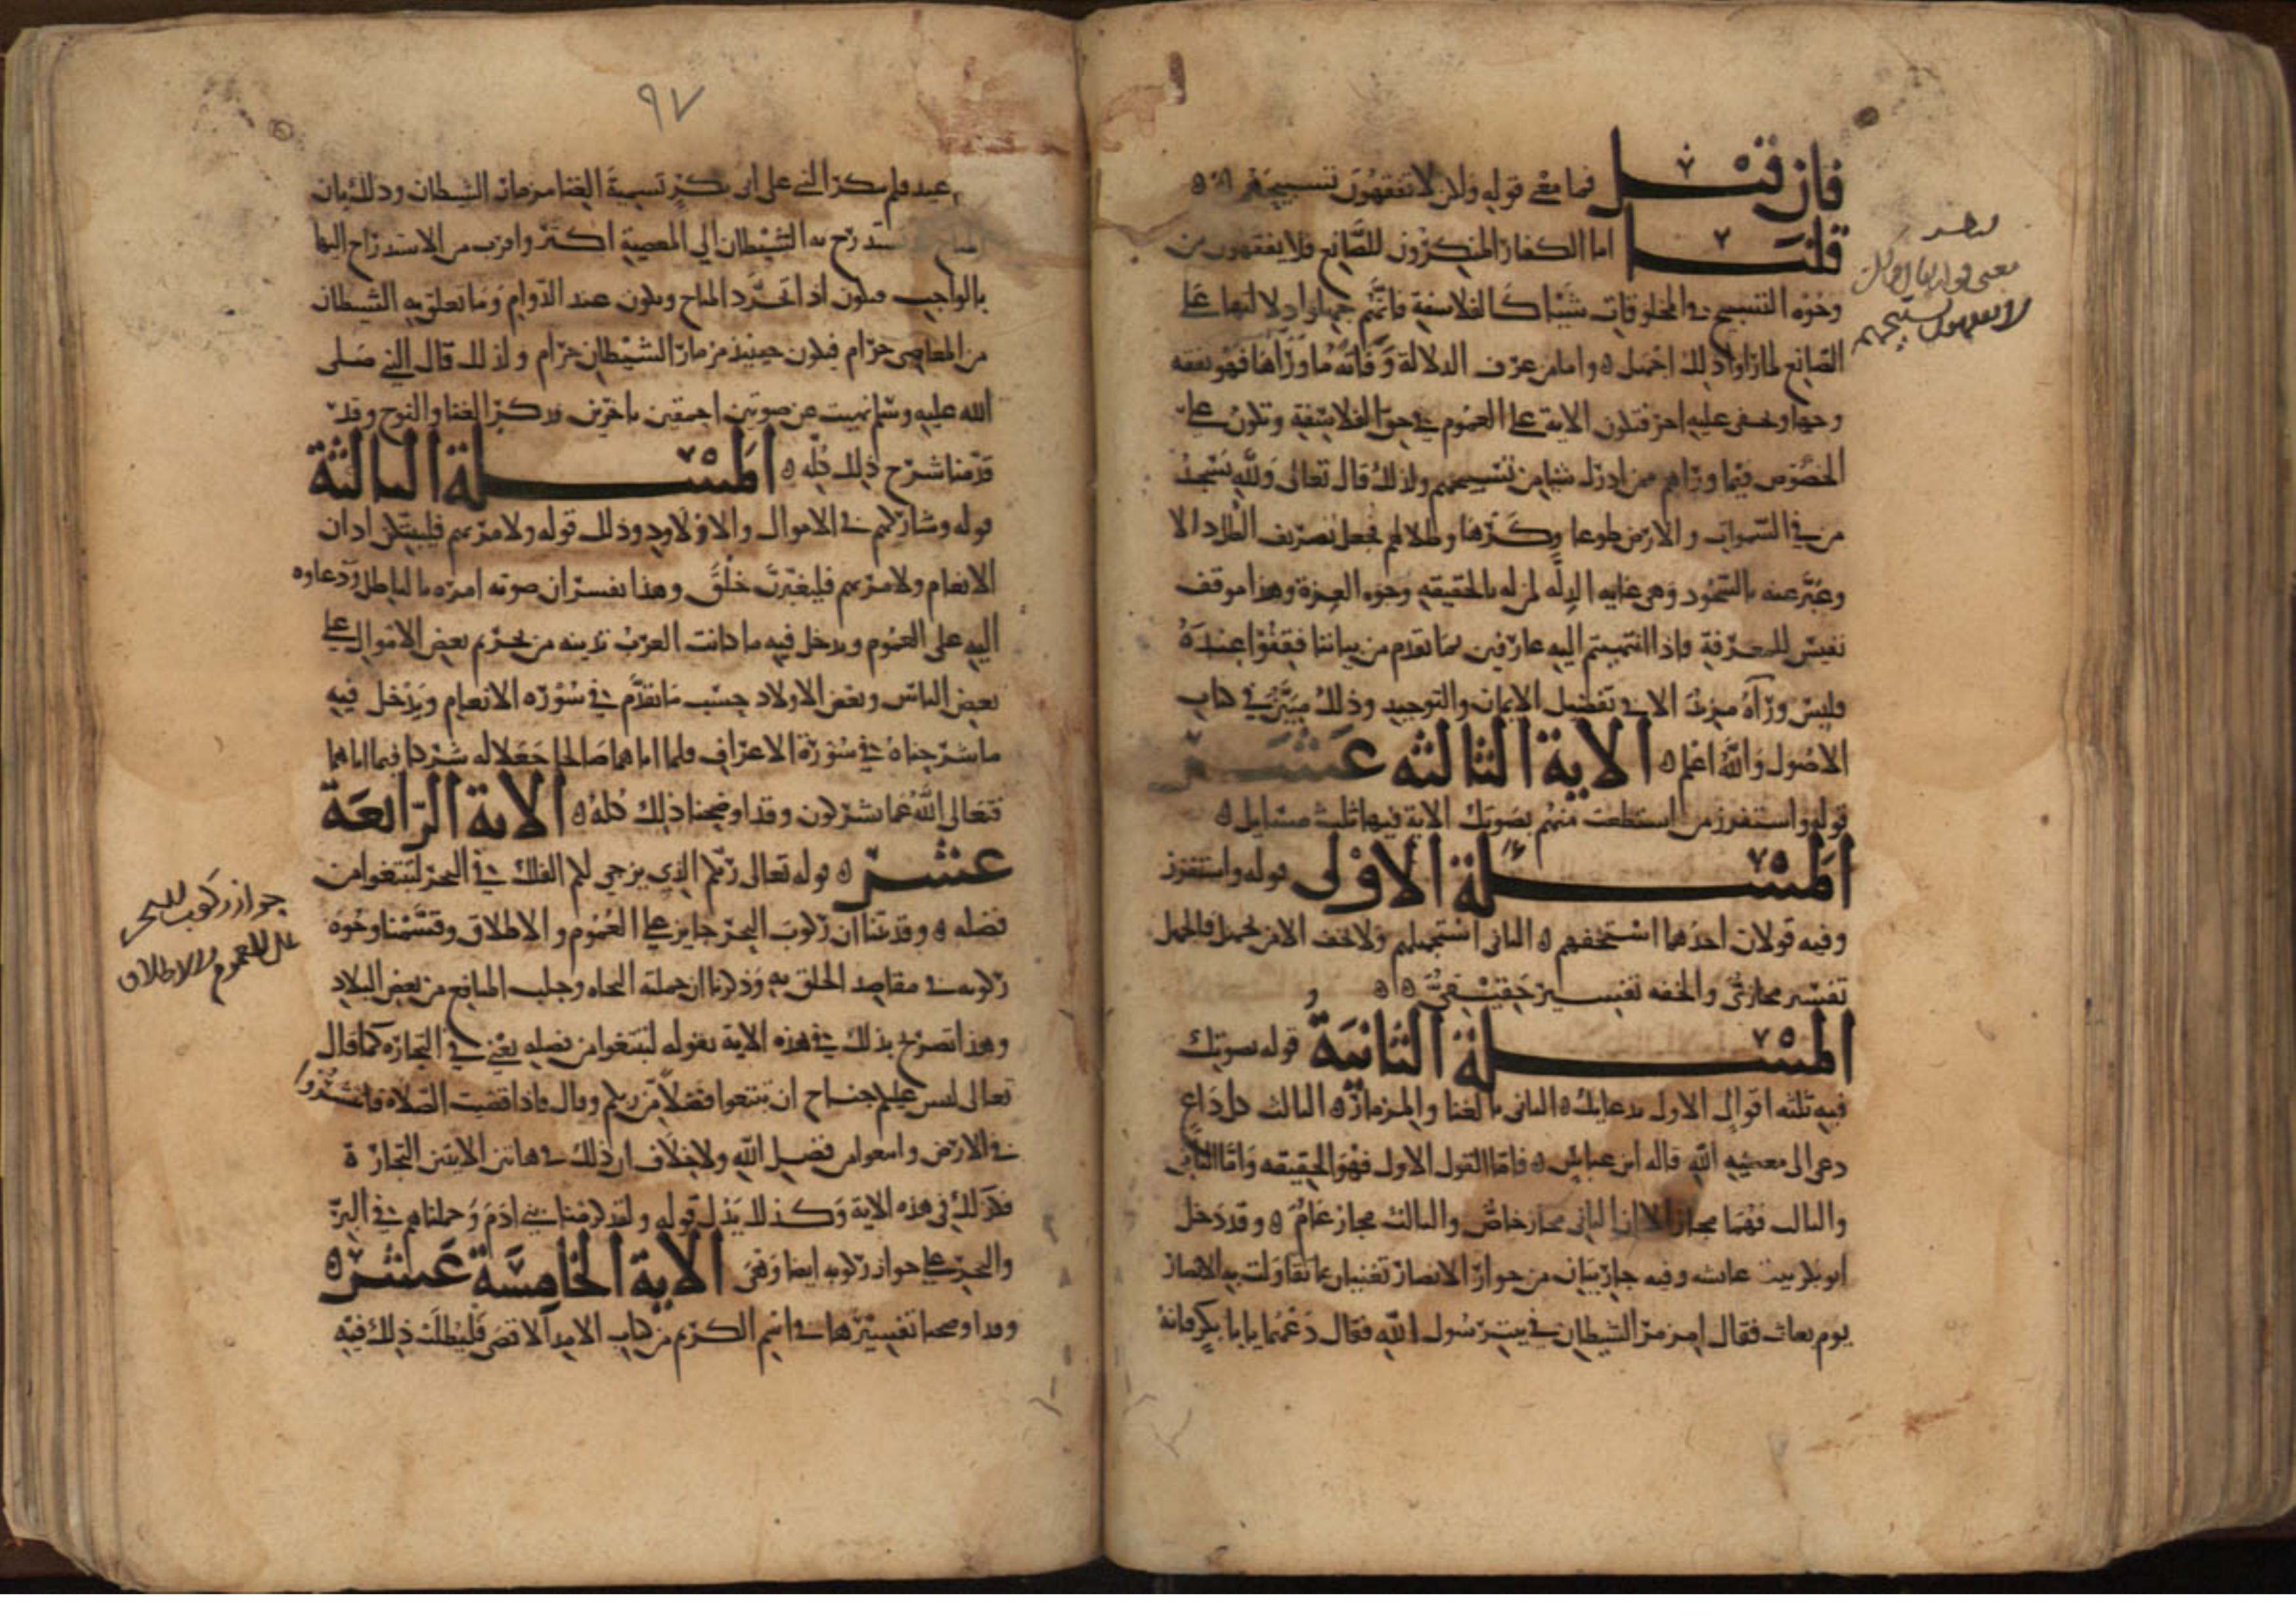 فان قيل فما معنى قوله ولكن لا تفقهون تسبيحهم
قلنا اما الكفار المنكرون للصانع فلا يفقهون من
وجوه التسبيح في المخلوقات شيئا كالفلاسفة فانهم جهلوا دلالتها على
الصانع لما زاد ذلك اجهل واما من عرف الدلالة وفاته ما وراها فهو يفقه
وجها وخفي عليه اخر فتكون الاية على العموم في حق الفلاسفة وتكون على
الخصوص فيما وراهم ممن ادرك شيا من تسبيحهم ولذلك قال تعالى ولله يسجد
من في السموات والارض طوعا وكرها وظلالهم فجعل تصريف الظل
وعبر عنه بالسجود وهي غايه الذله لمن له بالحقيقه وجوه العزة وهذا موقف
نفيس للمعرفة فاذا انتهيتم اليه عارفين بما تقدم من بياننا فقفوا عنده
فليس وراه مزيد الا في تفصيل الايمان والتوحيد وذلك مبين في كتاب
الاصول والله اعلم الاية الثالثه عشر
قوله واستفزز من استطعت منهم بصوتك الاية فيها ثلث مسايل
المسلة الاولى قوله واستفزز
وفيه قولان احدهما استخفهم الثاني استجهلهم ولا يخف الا من يجهل فالجهل
تفسير مجازي والخفه تفسير حقيقي
المسلة الثانية قوله بصوتك
فيه ثلثه اقوال الاول بدعايك الثاني بالغنا والمزمار الثالث كل داع
دعي الى معصيه الله قاله ابن عباس فاما القول الاول فهو الحقيقه واما الثاني
والثالث فهما مجاز الا ان الثاني مجاز خاص والثالث مجاز عام وقد دخل
ابو بكر بيت عايشه وفيه جاريتان من جواري الانصار تغنيان بما تقاولت به الانصار
يوم بعاث فقال امزمار الشيطان في بيت رسول الله فقال دعهما يا با بكر فانه
معنى قوله تعالى ولكن
لا تفقهون تسبيحهم
٩٧
عيد فلم ينكر النبي على ابي بكر تسمية الغنا مزمار الشيطان وذلك بان
المباح يستدرج به الشيطان الي المعصية اكثر واقرب من الاستدراج اليها
بالواجب فيكون اذا تجرد المباح ويكون عند الدوام وما تعلق به الشيطان
من المعاصي حرام فيكون حينيذ مزمار الشيطان حرام ولذلك قال النبي صلى
الله عليه وسلم نهيت عن صوتين احمقين فاجرين فذكر الغنا والنوح وقد
قدمنا شرح ذلك كله المسلة الثالثة
قوله وشاركهم في الاموال والاولاد وذلك قوله ولامرنهم فليبتكن اذان
الانعام ولامرنهم فليغيرن خلق وهذا تفسير ان صوته امره بالباطل ودعاوه
اليه على العموم ويدخل فيه ما كانت العرب تدينه من تحريم بعض الاموال على
بعض الناس وبعض الاولاد حسب ما تقدم في سورة الانعام ويدخل فيه
ما شرحناه في سورة الاعراف فلما اتاهما صالحا جعلا له شركا فيما اتاهما
فتعالى الله عما يشركون وقد اوضحنا ذلك كله الاية الرابعة
عشر قوله تعالى ربكم الذي يزجي لكم الفلك في البحر لتبتغوا من
فضله وقد بينا ان ركوب البحر جايز على العموم والاطلاق وقسمنا وجوه
ركوبه في مقاصد الخلق به وذكرنا ان جملته التجاه وجلب المنافع من بعض البلاد
وهذا تصريح بذلك في هذه الاية بقوله لتبتغوا من فضله يعني في التجارة كما قال
تعالى ليس عليكم جناح ان تبتغوا فضلا من ربكم وقال فاذا قضيت الصلاة فانتشروا
في الارض وابتغوا من فضل الله ولا خلاف ان ذلك في هاتين الايتين التجارة
فكذلك في هذه الاية وكذلك يدل قوله ولقد كرمنا بني ادم وحملناهم في البر
والبحر على جواز ركوبه ايضا وهي الاية الخامسة عشر
وقد اوضحنا تفسيرها في اسم الكريم من كتاب الامد الاقصى فليطلب ذلك فيه
جواز ركوب البحر
على العموم والاطلاق